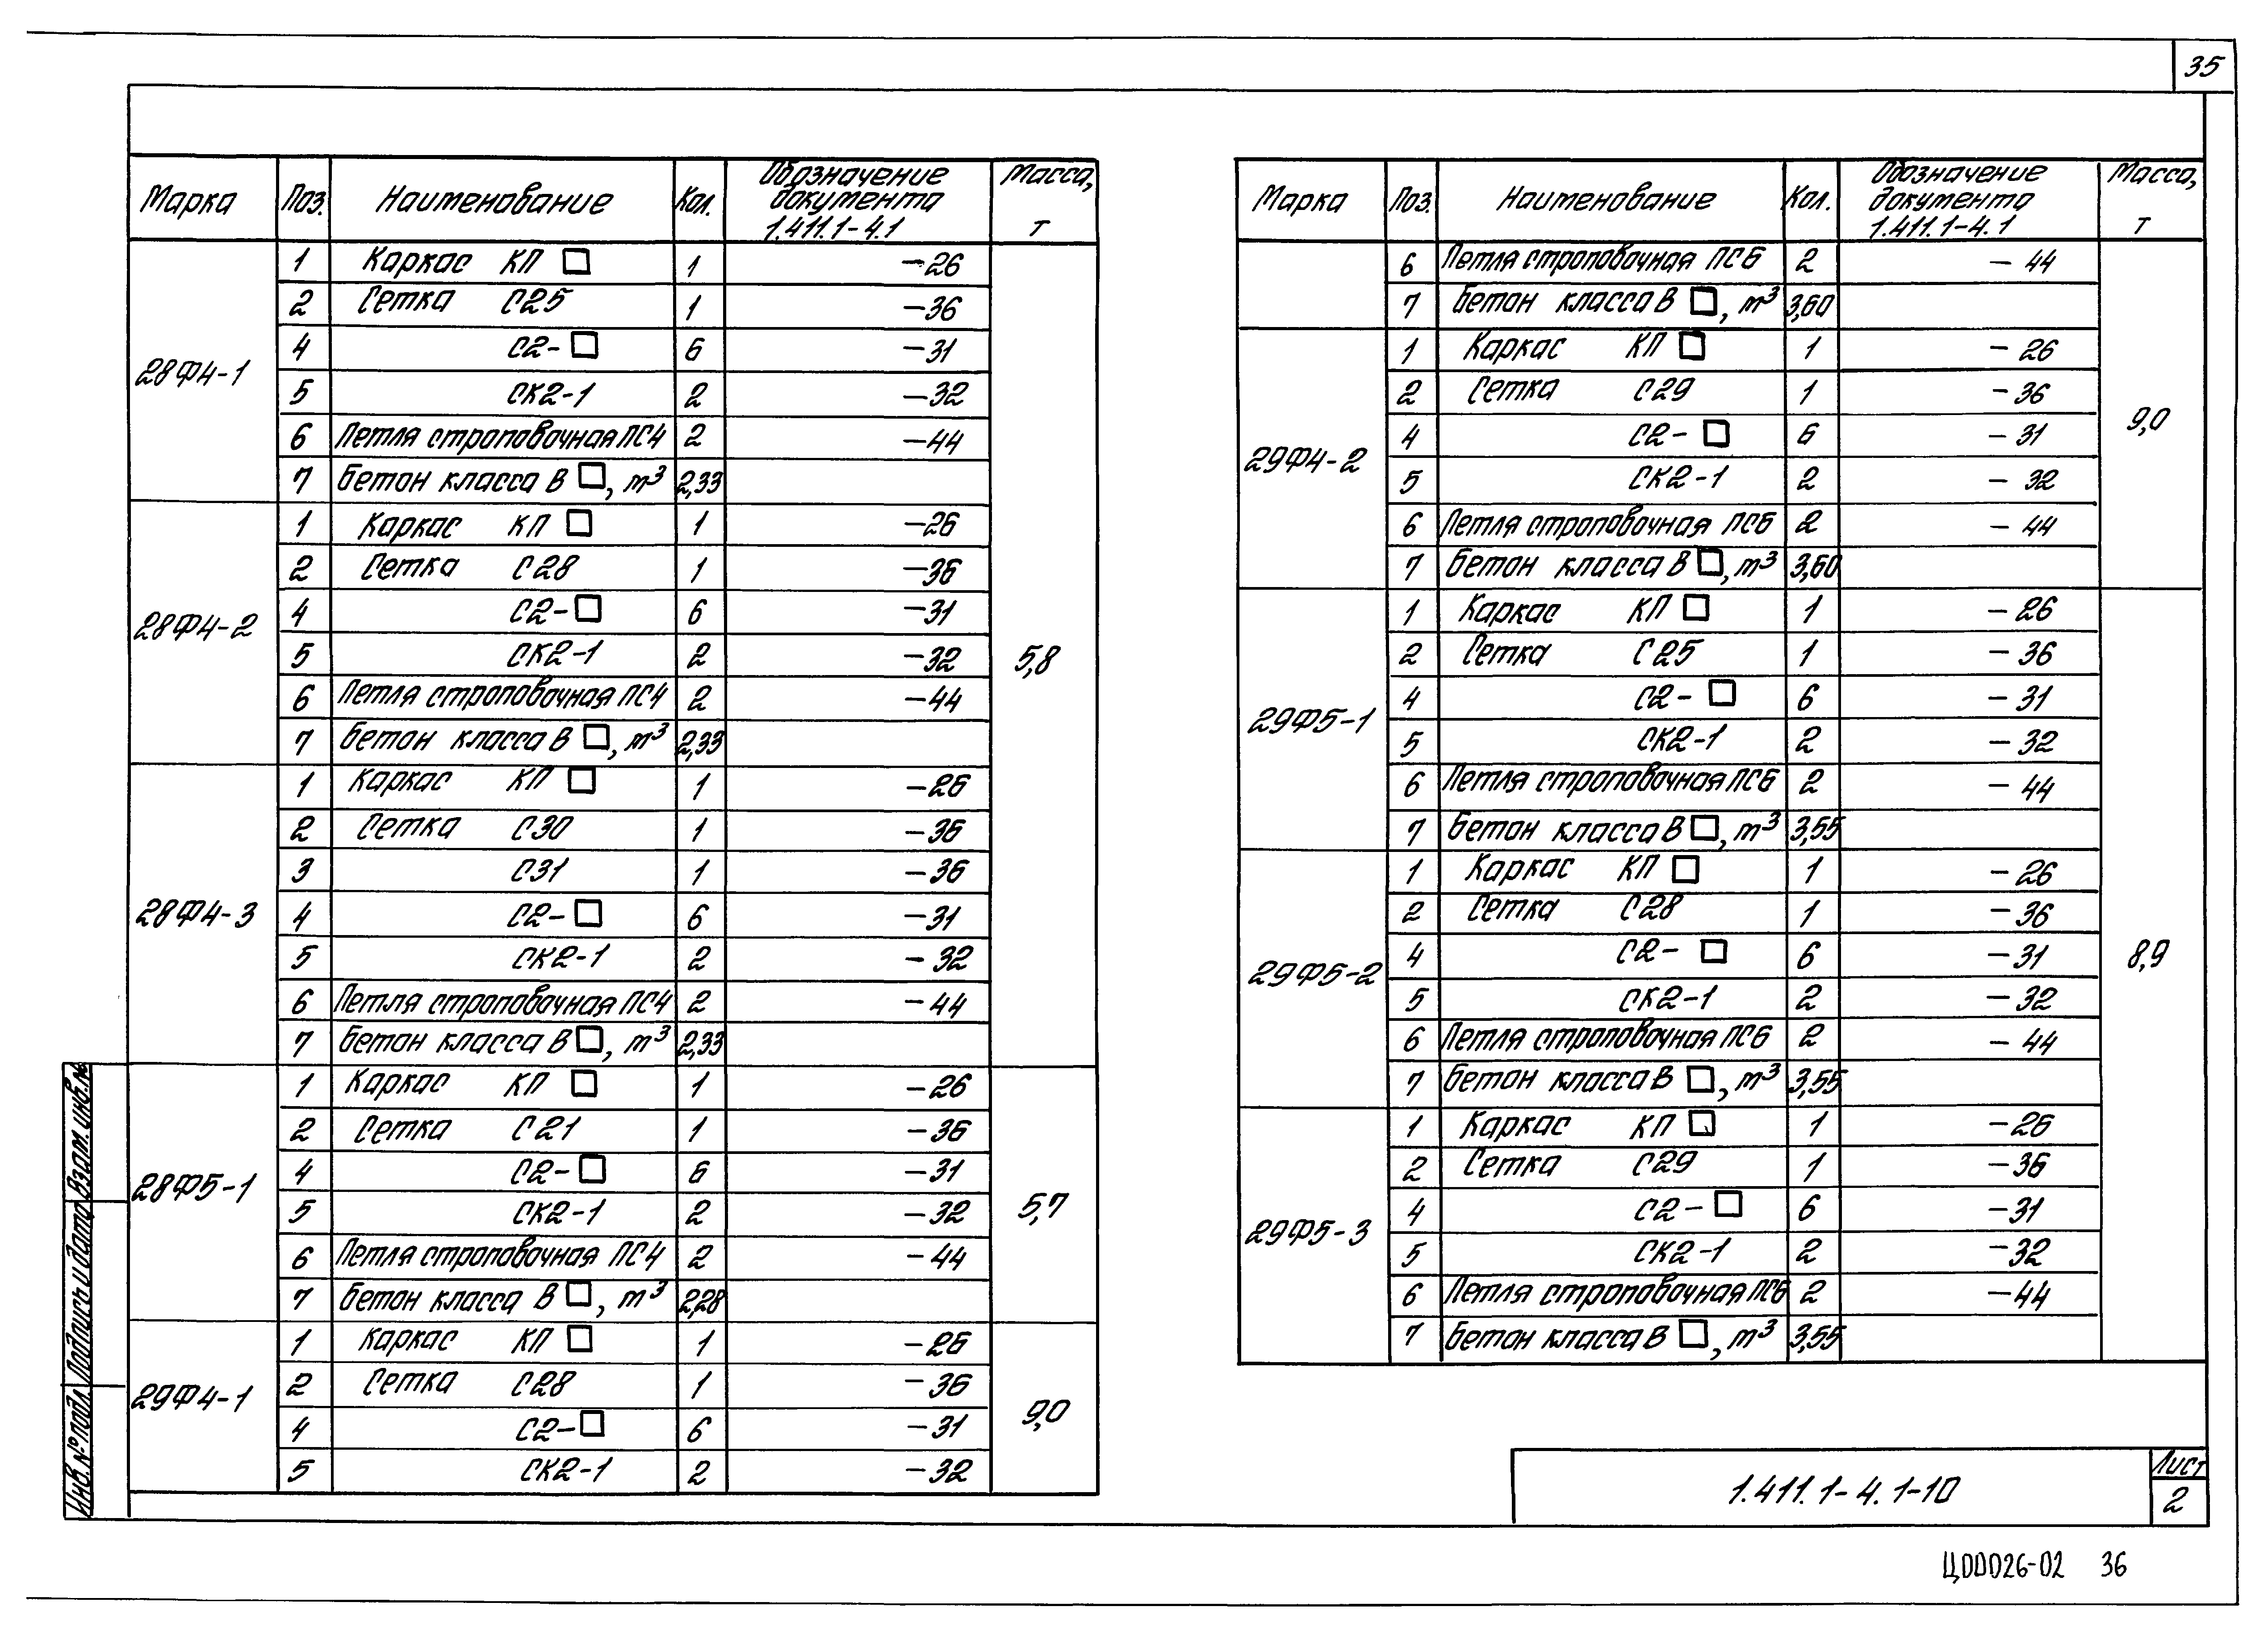 35
Марка Поз. Наименование Кол. Обозначение документа 1.411.1-4.1 Масса, т
28Ф4-1
1 Каркас КП □ 1 -26
2 Сетка С25 1 -36
4 С2-□ 6 -31
5 СК2-1 2 -32
6 Петля строповочная ПС4 2 -44
7 Бетон класса В □, м³ 2,33
28Ф4-2
1 Каркас КП □ 1 -26
2 Сетка С28 1 -36
4 С2-□ 6 -31
5 СК2-1 2 -32
6 Петля строповочная ПС4 2 -44
7 Бетон класса В □, м³ 2,33
5,8
28Ф4-3
1 Каркас КП □ 1 -26
2 Сетка С30 1 -36
3 С31 1 -36
4 С2-□ 6 -31
5 СК2-1 2 -32
6 Петля строповочная ПС4 2 -44
7 Бетон класса В □, м³ 2,33
28Ф5-1
1 Каркас КП □ 1 -26
2 Сетка С21 1 -36
4 С2-□ 6 -31
5 СК2-1 2 -32
6 Петля строповочная ПС4 2 -44
7 Бетон класса В □, м³ 2,28
5,7
29Ф4-1
1 Каркас КП □ 1 -26
2 Сетка С28 1 -36
4 С2-□ 6 -31
5 СК2-1 2 -32
9,0
Марка Поз. Наименование Кол. Обозначение документа 1.411.1-4.1 Масса, т
6 Петля строповочная ПС6 2 -44
7 Бетон класса В □, м³ 3,60
29Ф4-2
1 Каркас КП □ 1 -26
2 Сетка С29 1 -36
4 С2-□ 6 -31
5 СК2-1 2 -32
6 Петля строповочная ПС6 2 -44
7 Бетон класса В □, м³ 3,60
9,0
29Ф5-1
1 Каркас КП □ 1 -26
2 Сетка С25 1 -36
4 С2-□ 6 -31
5 СК2-1 2 -32
6 Петля строповочная ПС6 2 -44
7 Бетон класса В □, м³ 3,55
29Ф5-2
1 Каркас КП □ 1 -26
2 Сетка С28 1 -36
4 С2-□ 6 -31
5 СК2-1 2 -32
6 Петля строповочная ПС6 2 -44
7 Бетон класса В □, м³ 3,55
8,9
29Ф5-3
1 Каркас КП □ 1 -26
2 Сетка С29 1 -36
4 С2-□ 6 -31
5 СК2-1 2 -32
6 Петля строповочная ПС6 2 -44
7 Бетон класса В □, м³ 3,55
Инв.№подл. Подпись и дата Взам.инв.№
1.411.1-4.1-10
Лист
2
Ц00026-02 36